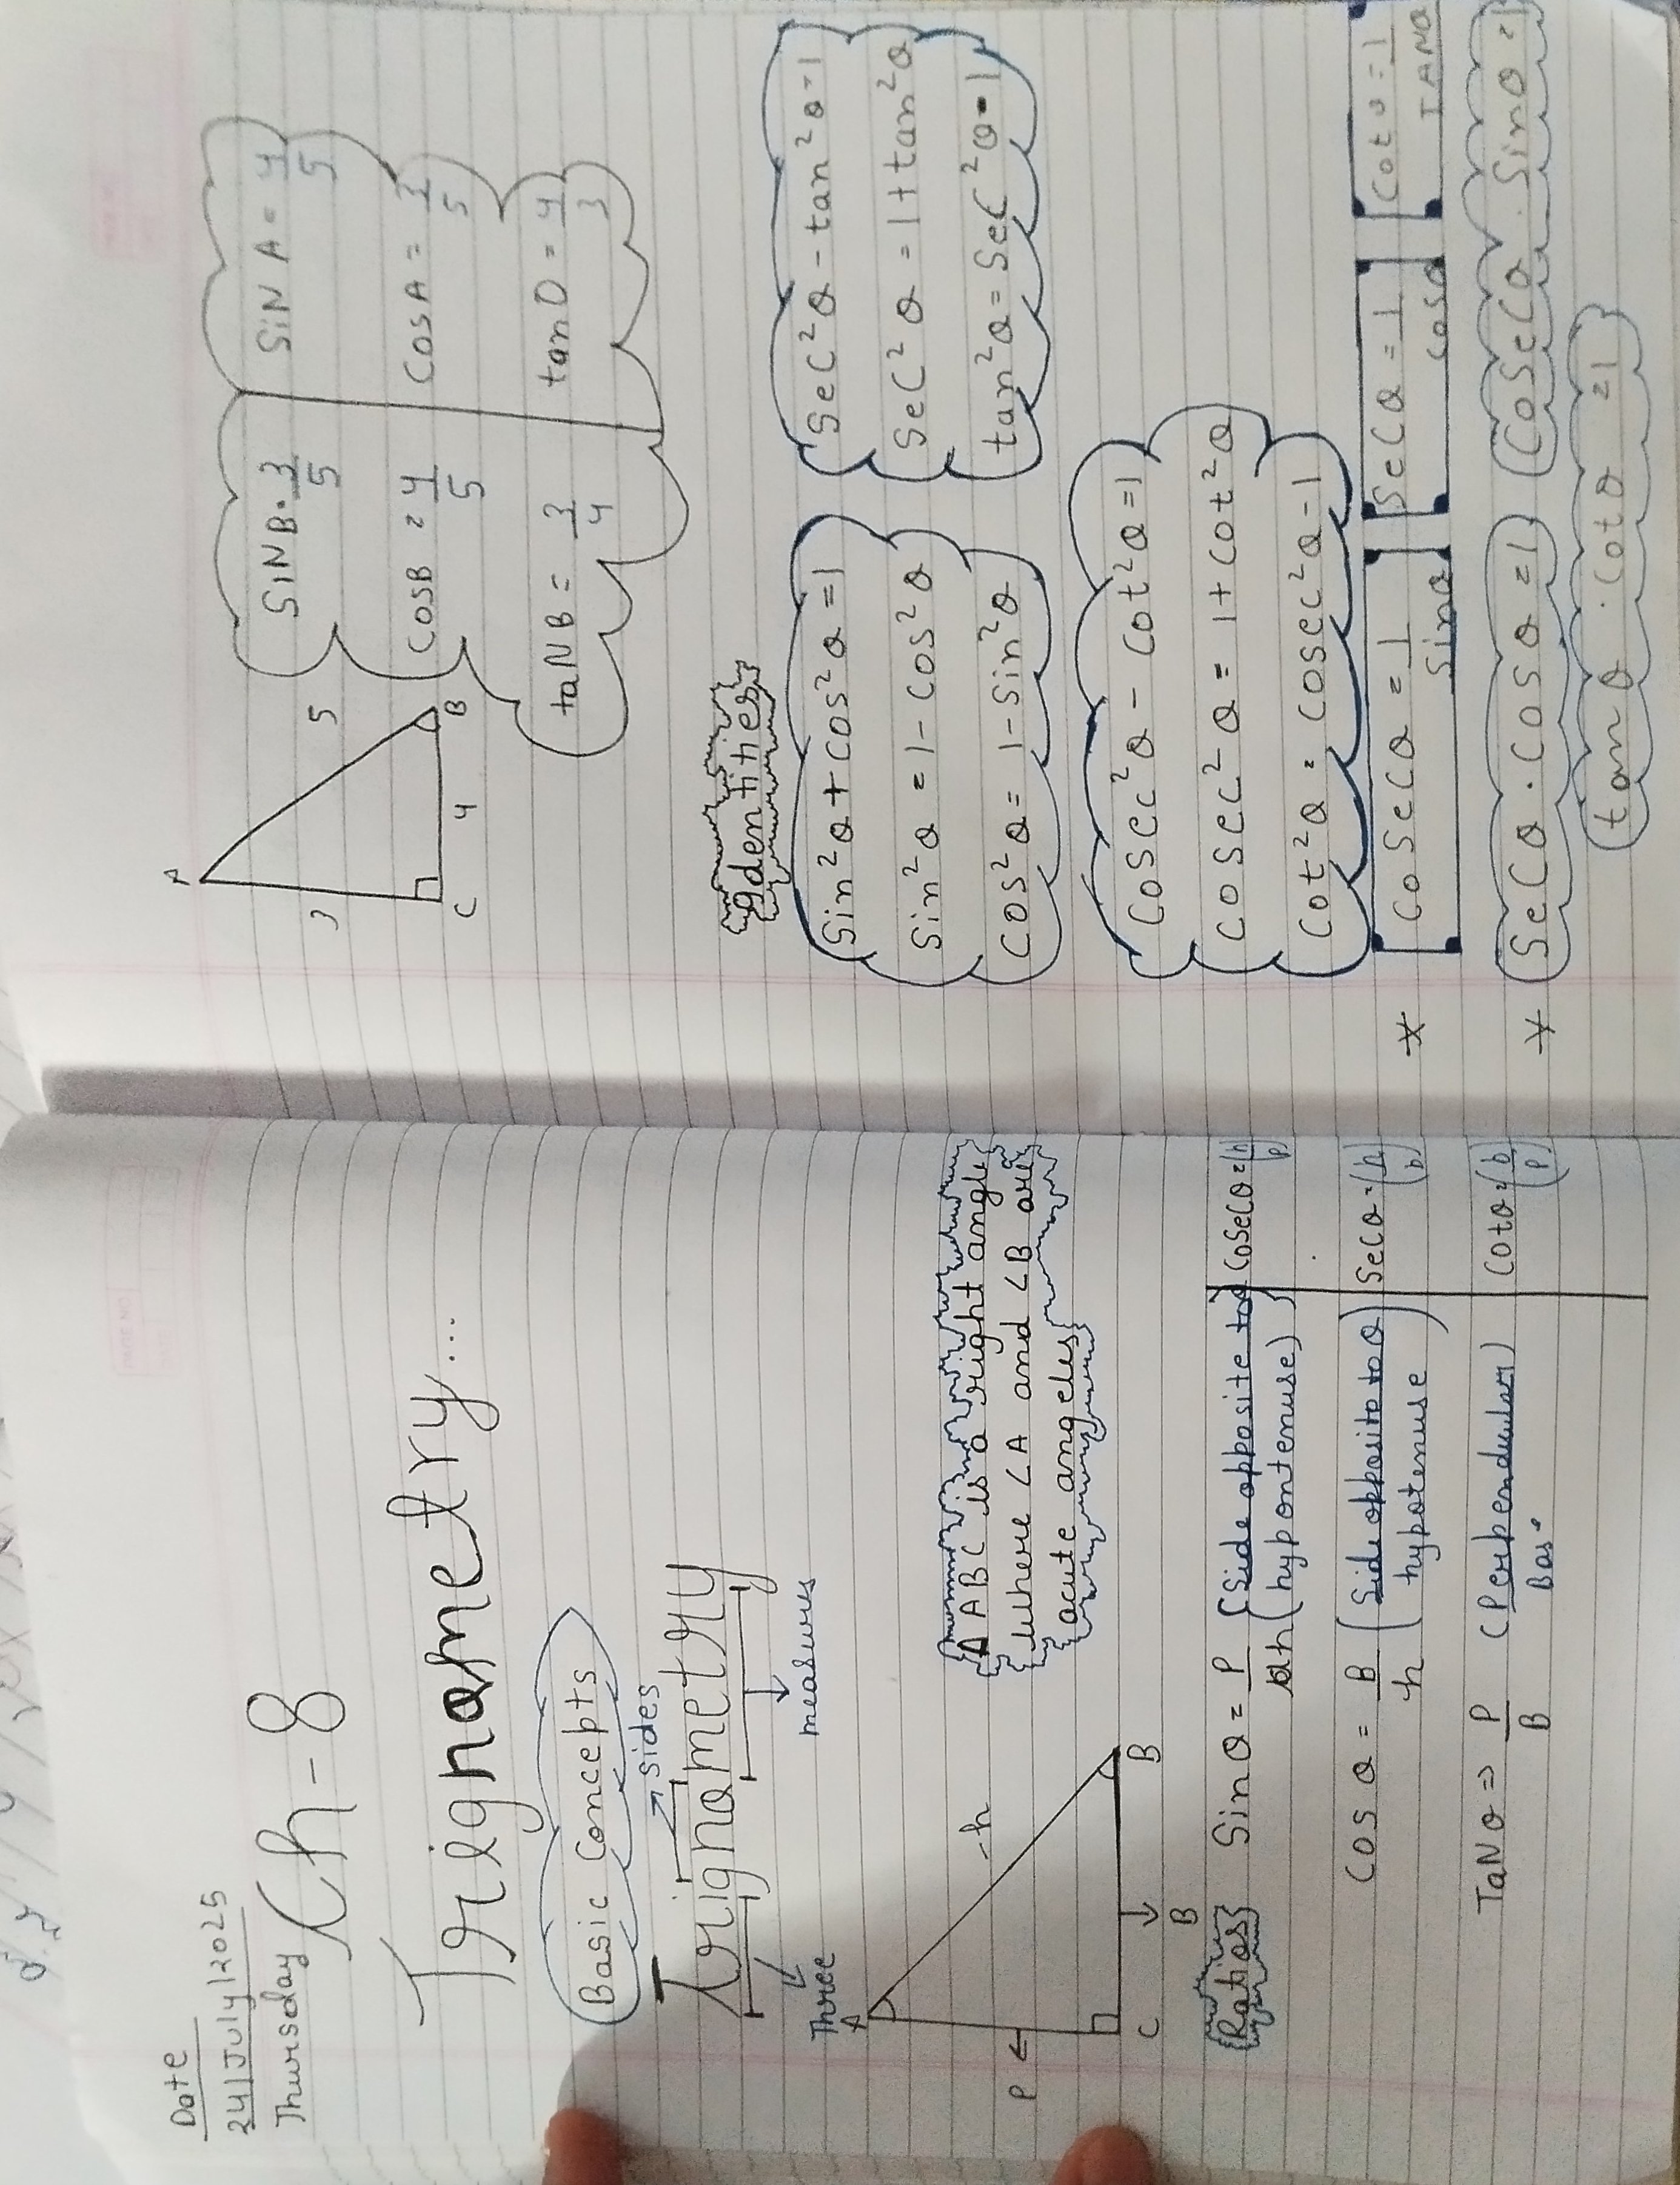 Date
24|July|2025
Thursday
Ch-8
Trignometry...
Basic Concepts
sides
Trignometry
Three
measures
A
P
h
C
B
B
Δ ABC is a right angle
where ∠A and ∠B are
acute angeles
Ratios
Sin θ = P/h (Side opposite to θ / hypontenuse)
Cosec θ = (h/p)
Cos θ = B/h (Side opposite to θ / hypotenuse)
Sec θ = (h/b)
TaNθ ⇒ P/B (Perpendicular / Base)
Cot θ = (b/p)
A
3
5
C
4
B
SiN B = 3/5
SiN A = 4/5
CosB = 4/5
CosA = 3/5
taNB = 3/4
tanθ = 4/3
Identities
Sin²θ + Cos²θ = 1
Sin²θ = 1 - Cos²θ
Cos²θ = 1 - Sin²θ
Sec²θ - tan²θ = 1
Sec²θ = 1 + tan²θ
tan²θ = Sec²θ - 1
Cosec²θ - Cot²θ = 1
Cosec²θ = 1 + Cot²θ
Cot²θ = Cosec²θ - 1
* Cosecθ = 1/Sinθ
Secθ = 1/Cosθ
Cotθ = 1/TANθ
* Secθ . Cosθ = 1
Cosecθ . Sinθ = 1
tanθ . Cotθ = 1